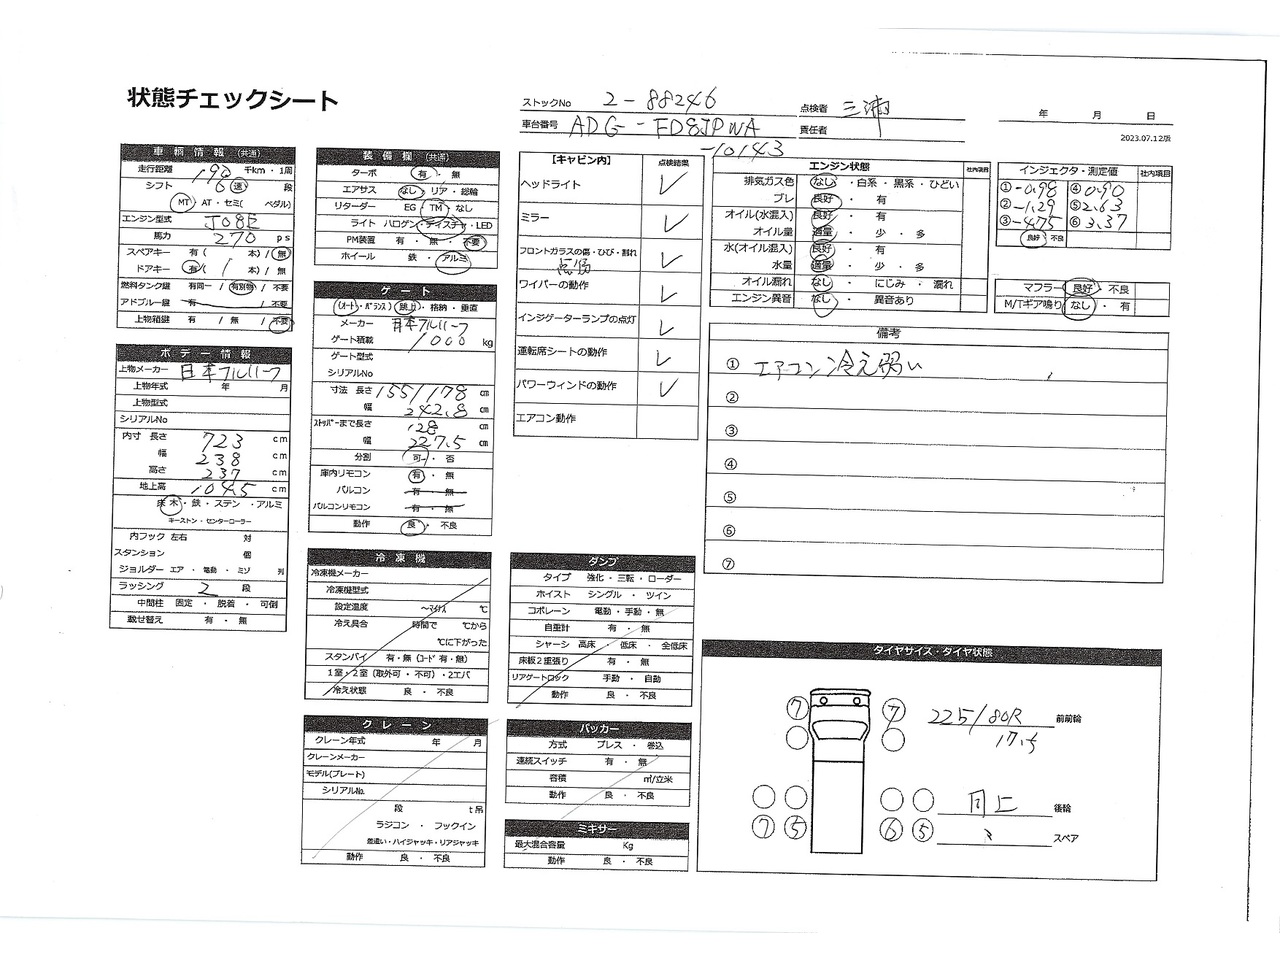 状態チェックシート
ストックNo 2-88246
点検者 三浦
年 月 日
車台番号 ADG-FD8JPWA
-10143
責任者
2023.07.12版
車輌情報 (共通)
走行距離 190 千km・1周
シフト 6 速 段
MT・AT・セミ( ペダル)
エンジン型式 J08E
馬力 270 ps
スペアキー 有( 本)/無
ドアキー 有( 1 本)/無
燃料タンク鍵 有同一/有別物/不要
アドブルー鍵 有 /不要
上物箱鍵 有 / 無 /不要
ボデー情報
上物メーカー 日本フルハーフ
上物年式 年 月
上物型式
シリアルNo
内寸 長さ 723 cm
幅 238 cm
高さ 237 cm
地上高 104.5 cm
床 木・鉄・ステン・アルミ
キーストン・センターローラー
内フック 左右 対
スタンション 個
ジョルダー エア・電動・ミゾ 列
ラッシング 2 段
中間柱 固定・脱着・可倒
載せ替え 有・無
装備欄 (共通)
ターボ 有・無
エアサス なし・リア・総輪
リターダー EG・TM・なし
ライト ハロゲン・ディスチャ・LED
PM装置 有・無・不要
ホイール 鉄・アルミ
ゲート
(オート・バランス) 跳上・格納・垂直
メーカー 日本フルハーフ
ゲート積載 1000 kg
ゲート型式
シリアルNo
寸法 長さ 155/178 cm
幅 242.8 cm
ストッパーまで長さ 128 cm
幅 227.5 cm
分割 可・否
庫内リモコン 有・無
バルコン 有・無
バルコンリモコン 有・無
動作 良・不良
冷凍機
冷凍機メーカー
冷凍機型式
設定温度 ～マイナス ℃
冷え具合 時間で ℃から
℃に下がった
スタンバイ 有・無(コード 有・無)
1室・2室(取外可・不可)・2エバ
冷え状態 良・不良
クレーン
クレーン年式 年 月
クレーンメーカー
モデル(プレート)
シリアルNo.
段 t吊
ラジコン・フックイン
差違い・ハイジャッキ・リアジャッキ
動作 良・不良
【キャビン内】 点検結果
ヘッドライト ✓
ミラー ✓
フロントガラスの傷・ひび・割れ ✓
点傷
ワイパーの動作 ✓
インジゲーターランプの点灯 ✓
運転席シートの動作 ✓
パワーウィンドの動作 ✓
エアコン動作
ダンプ
タイプ 強化・三転・ローダー
ホイスト シングル・ツイン
コボレーン 電動・手動・無
自重計 有・無
シャーシ 高床・低床・全低床
床板2重張り 有・無
リアゲートロック 手動・自動
動作 良・不良
パッカー
方式 プレス・巻込
連続スイッチ 有・無
容積 ㎥/立米
動作 良・不良
ミキサー
最大混合容量 Kg
動作 良・不良
エンジン状態 社内項目
排気ガス色 なし・白系・黒系・ひどい
ブレ 良好・有
オイル(水混入) 良好・有
オイル量 適量・少・多
水(オイル混入) 良好・有
水量 適量・少・多
オイル漏れ なし・にじみ・漏れ
エンジン異音 なし・異音あり
インジェクタ・測定値 社内項目
①-0.98 ④0.90
②-1.29 ⑤2.63
③-4.75 ⑥3.37
良好・不良
マフラー 良好・不良
M/Tギア鳴り なし・有
備考
① エアコン冷え弱い
②
③
④
⑤
⑥
⑦
タイヤサイズ・タイヤ状態
7 7 225/80R 前前輪
17.5
同上 後輪
7 5 6 5 スペア